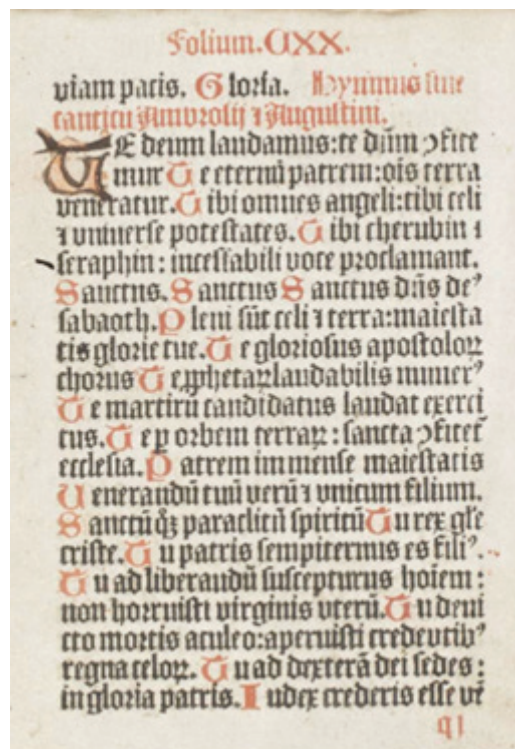 Folium. CXX.
viam pacis. Gloria. Hymnus siue
canticū Ambrosij ⁊ Augustini.
TE deum laudamus: te dn̄m ꝯfite
mur Te eternū patrem: oīs terra
veneratur. Tibi omnes angeli: tibi celi
⁊ vniuerse potestates. Tibi cherubin ⁊
seraphin: incessabili voce proclamant.
Sanctus. Sanctus Sanctus dn̄s deꝰ
sabaoth. Pleni sūt celi ⁊ terra: maiesta
tis glorie tue. Te gloriosus apostoloꝝ
chorus Te ꝓphetaꝝ laudabilis numerꝰ
Te martirū candidatus laudat exerci
tus. Te ꝑ orbem terraꝝ: sancta ꝯfitet᷑
ecclesia. Patrem immense maiestatis
Uenerandū tuū verū ⁊ vnicum filium.
Sanctū qꝫ paraclitū spiritū Tu rex gl̄e
criste. Tu patris sempiternus es filiꝰ.
Tu ad liberandū suscepturus hoīem:
non horruisti virginis vterū. Tu deui
cto mortis aculeo: aperuisti credentibꝰ
regna celoꝝ. Tu ad dexterā dei sedes:
in gloria patris. Iudex crederis esse vē
q1